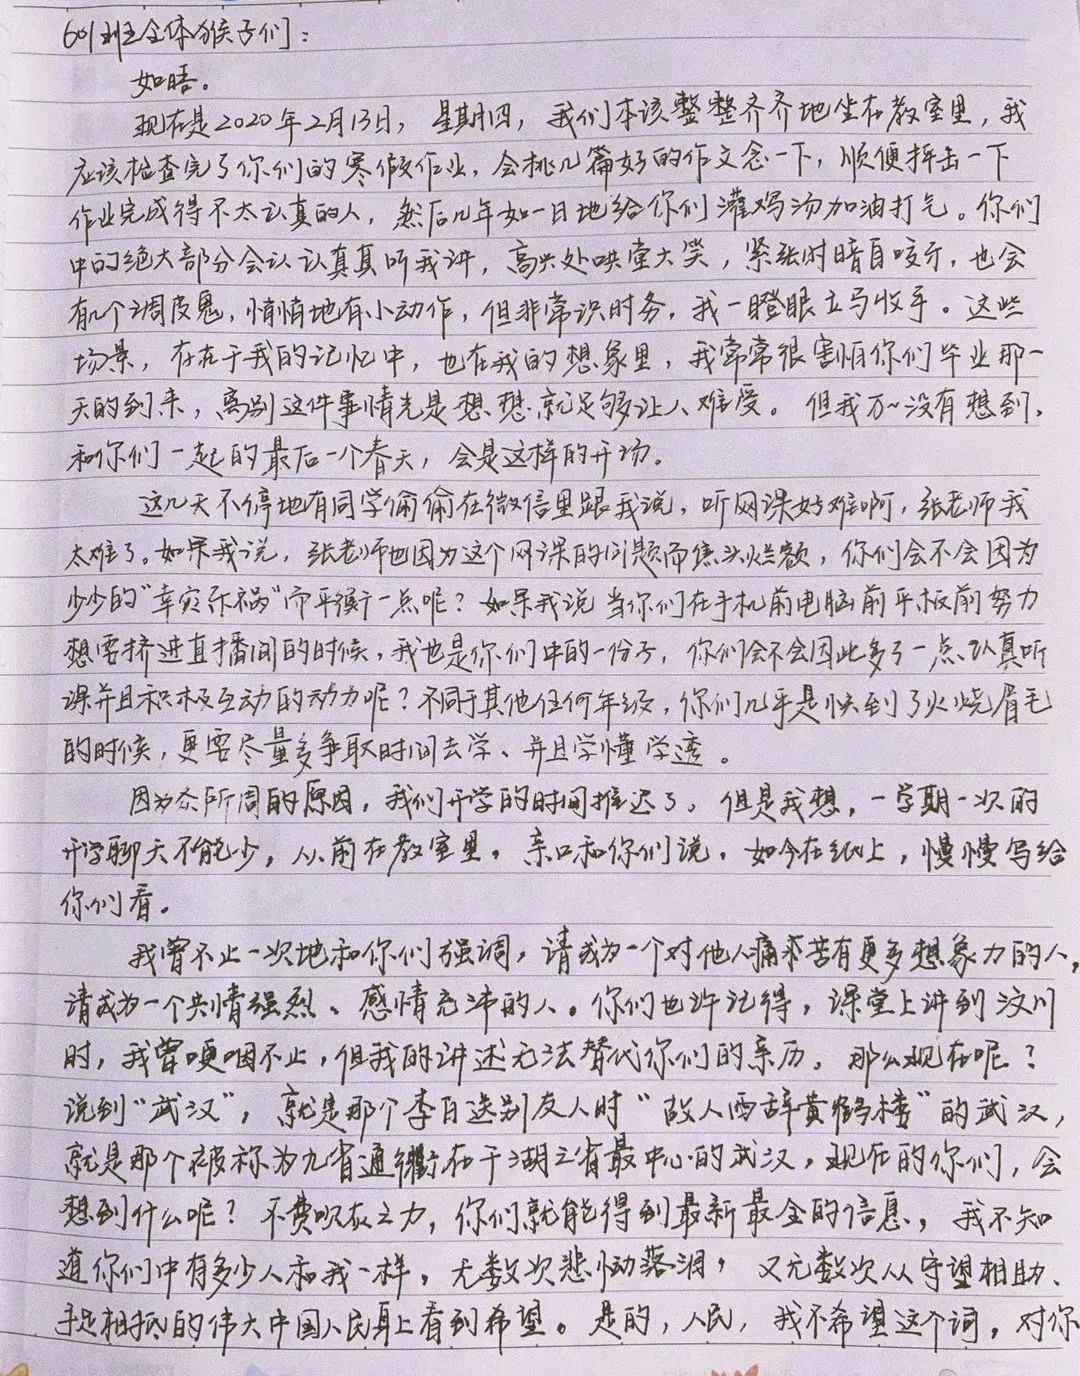 601班全体猴子们：
如晤。
现在是2020年2月13日，星期四，我们本该整整齐齐地坐在教室里，我
应该检查完了你们的寒假作业，会挑几篇好的作文念一下，顺便抨击一下
作业完成得不太认真的人，然后几年如一日地给你们灌鸡汤加油打气。你们
中的绝大部分会认认真真听我讲，高兴处哄堂大笑，紧张时暗自咬牙，也会
有几个调皮鬼，悄悄地有小动作，但非常识时务，我一瞪眼立马收手。这些
场景，存在于我的记忆中，也在我的想象里，我常常很害怕你们毕业那一
天的到来，离别这件事情光是想想就足够让人难受。但我万万没有想到，
和你们一起的最后一个春天，会是这样的开场。
这几天不停地有同学偷偷在微信里跟我说，听网课好难啊，张老师我
太难了。如果我说，张老师也因为这个网课的问题而焦头烂额，你们会不会因为
少少的“幸灾乐祸”而平衡一点呢？如果我说当你们在手机前电脑前平板前努力
想要挤进直播间的时候，我也是你们中的一份子，你们会不会因此多了一点认真听
课并且积极互动的动力呢？不同于其他任何年级，你们几乎是快到了火烧眉毛
的时候，更要尽量多争取时间去学、并且学懂学透。
因为众所周的原因，我们开学的时间推迟了。但是我想，一学期一次的
开学聊天不能少，从前在教室里，亲口和你们说，如今在纸上，慢慢写给
你们看。
我曾不止一次地和你们强调，请成为一个对他人痛苦有更多想象力的人，
请成为一个共情强烈、感情充沛的人。你们也许记得，课堂上讲到汶川
时，我曾哽咽不止，但我的讲述无法替代你们的亲历。那么现在呢？
说到“武汉”，就是那个李白送别友人时“故人西辞黄鹤楼”的武汉，
就是那个被称为九省通衢在于湖北省最中心的武汉，现在的你们，会
想到什么呢？不费吹灰之力，你们就能得到最新最全的信息，我不知
道你们中有多少人和我一样，无数次悲恸落泪，又无数次从守望相助、
手足相抵的伟大中国人民身上看到希望。是的，人民，我不希望这个词，对你